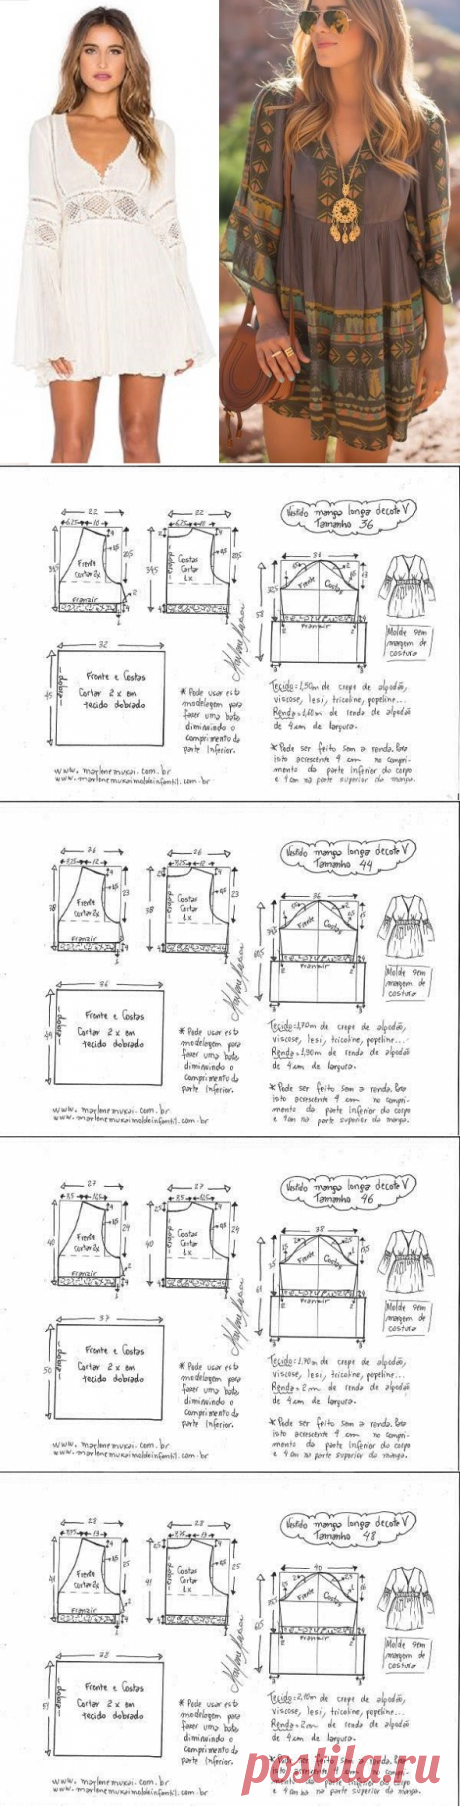 Vestido manga longa decote V
Tamanho 36
22
6,25 10
Frente
Cortar 2x
Franzir
22
6,25 10
Costas
Cortar
1x
dobra
31
Frente Costas
Franzir
Molde sem
margem de
costura
32
45
dobra
Frente e Costas
Cortar 2 x em
tecido dobrado
* Pode usar esta
modelagem para
fazer uma bata
diminuindo o
comprimento da
parte inferior.
Tecido = 1,50m de crepe de algodão,
viscose, lesi, tricoline, popeline...
Renda = 1,60m de renda de algodão
de 4 cm de largura.
* Pode ser feito sem a renda. Para
isto acrescente 4 cm no compri-
mento da parte inferior do corpo
e 4 cm na parte superior da manga.
www.marlenemukai.com.br
www.marlenemukaimoldeinfantil.com.br
Vestido manga longa decote V
Tamanho 44
26
7,25 12
Frente
Cortar 2x
Franzir
38
23
26
7,25 12
Costas
Cortar
1x
dobra
38
23
36
Frente Costas
Franzir
Molde sem
margem de
costura
36
49
dobra
Frente e Costas
Cortar 2 x em
tecido dobrado
* Pode usar esta
modelagem para
fazer uma bata
diminuindo o
comprimento da
parte inferior.
Tecido = 1,70m de crepe de algodão,
viscose, lesi, tricoline, popeline...
Renda = 1,90m de renda de algodão
de 4 cm de largura.
* Pode ser feito sem a renda. Para
isto acrescente 4 cm no compri-
mento da parte inferior do corpo
e 4 cm na parte superior da manga.
www.marlenemukai.com.br
www.marlenemukaimoldeinfantil.com.br
Vestido manga longa decote V
Tamanho 46
27
7,5 12,5
Frente
Cortar 2x
Franzir
40
24
27
7,5 12,5
Costas
Cortar
1x
dobra
40
24
38
Frente Costas
Franzir
Molde sem
margem de
costura
37
50
dobra
Frente e Costas
Cortar 2 x em
tecido dobrado
* Pode usar esta
modelagem para
fazer uma bata
diminuindo o
comprimento da
parte inferior.
Tecido = 1,70m de crepe de algodão,
viscose, lesi, tricoline, popeline...
Renda = 2m de renda de algodão
de 4 cm de largura.
* Pode ser feito sem a renda. Para
isto acrescente 4 cm no compri-
mento da parte inferior do corpo
e 4 cm na parte superior da manga.
www.marlenemukai.com.br
www.marlenemukaimoldeinfantil.com.br
Vestido manga longa decote V
Tamanho 48
28
7,75 13
Frente
Cortar 2x
Franzir
41
25
28
7,75 13
Costas
Cortar
1x
dobra
41
25
40
Frente Costas
Franzir
Molde sem
margem de
costura
38
51
dobra
Frente e Costas
Cortar 2 x em
tecido dobrado
* Pode usar esta
modelagem para
fazer uma bata
diminuindo o
comprimento da
parte inferior.
Tecido = 2,10m de crepe de algodão,
viscose, lesi, tricoline, popeline...
Renda = 2m de renda de algodão
de 4 cm de largura.
* Pode ser feito sem a renda. Para
isto acrescente 4 cm no compri-
mento da parte inferior do corpo
e 4 cm na parte superior da manga.
www.marlenemukai.com.br
www.marlenemukaimoldeinfantil.com.br
postila.ru